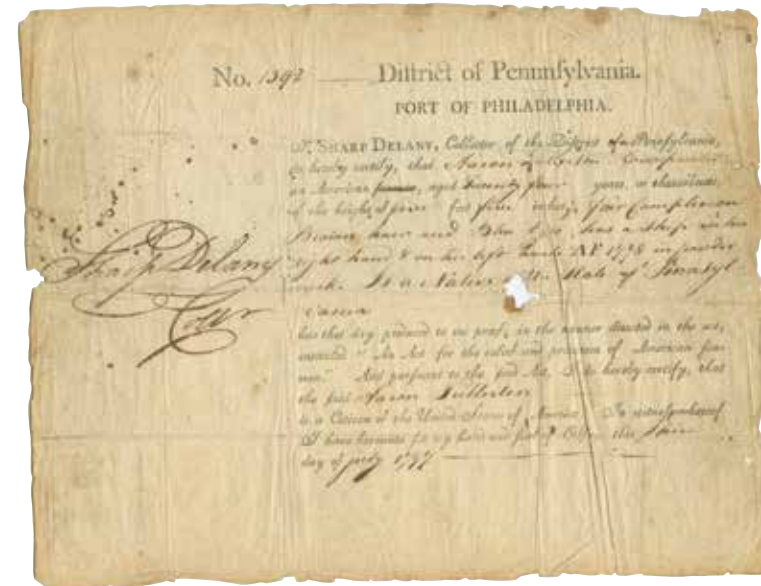 No. 1392 District of Pennsylvania.
PORT OF PHILADELPHIA.
I, SHARP DELANY, Collector of the District of Pennsylvania,
do hereby certify, that Aaron Fullerton
an American aged Twenty four years, or thereabouts,
of the height of five feet five inches, fair Complexion
Brown hair and Blue Eyes has a
right hand & on his left hand AF 1778 in powder
work Is a Native of the State of Pensyl
vania
has this day produced to me proof, in the manner directed in the act,
entitled "An Act for the relief and protection of American sea-
men." And pursuant to the said Act, I do hereby certify, that
the said Aaron Fullerton
is a Citizen of the United States of America. In witness whereof
I have hereunto set my hand and seal of Office this
day of July 1797
Sharp Delany
Collr